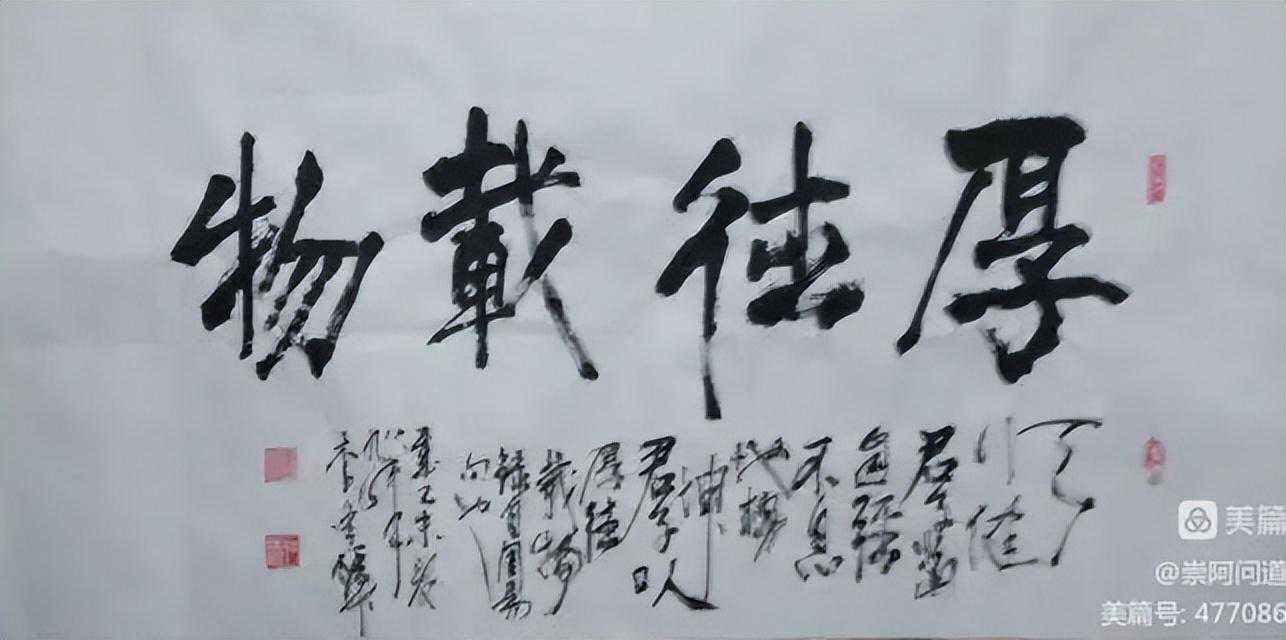 厚德載物
天
行健
君子
自強
不息
地勢
坤
君子以
厚德
載物
錄自周易
句也
歲乙未
美篇
@崇阿问道
美篇号: 477086